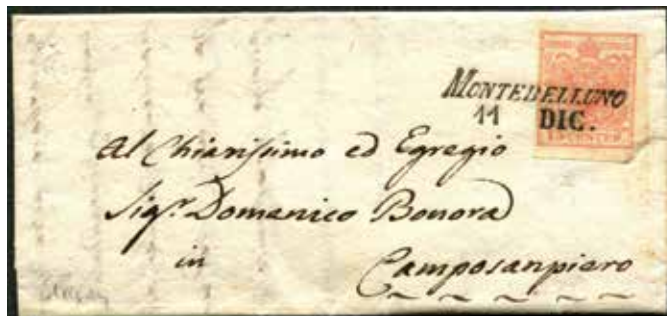 MONTEBELLUNO
11 DIC.
Al Chiarissimo ed Egregio
Sigr. Domenico Bonora
in
Camposanpiero